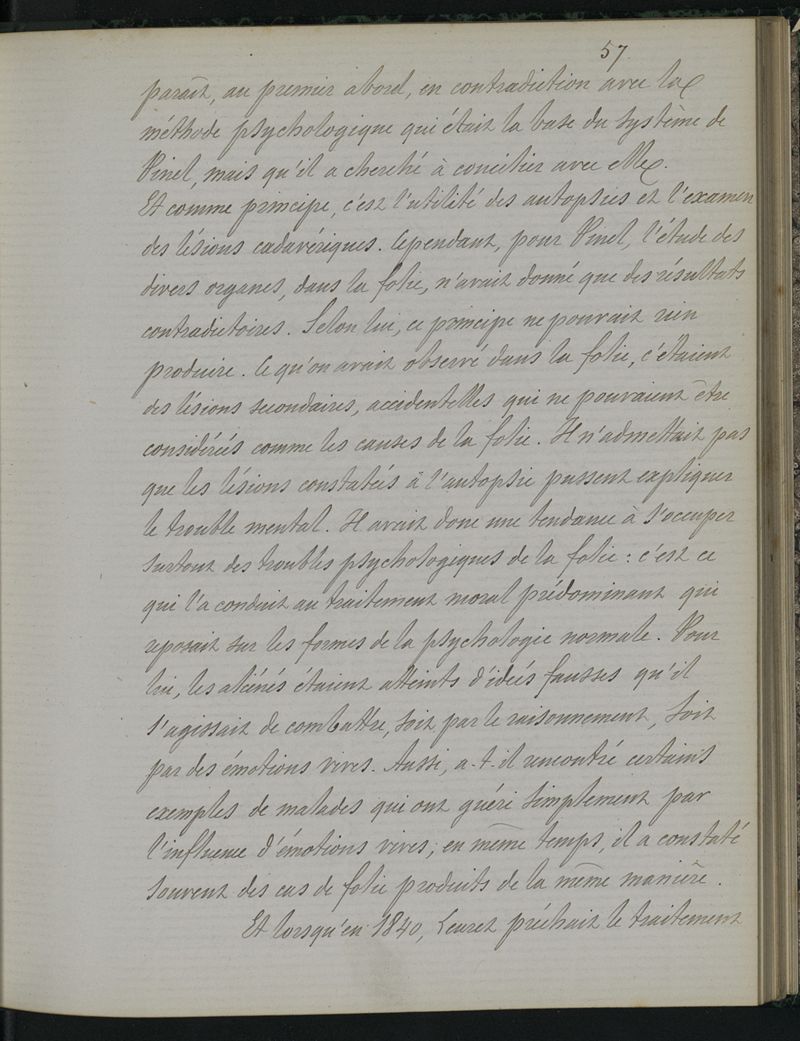 57
paraît, au premier abord, en contradiction avec la
méthode psychologique qui était la base du système de
Pinel, mais qu'il a cherché à concilier avec elle.
Et comme principe, c'est l'utilité des autopsies et l'examen
des lésions cadavériques. Cependant, pour Pinel, l'étude des
divers organes, dans la folie, n'avait donné que des résultats
contradictoires. Selon lui, ce principe ne pouvait rien
produire. Ce qu'on avait observé dans la folie, c'étaient
des lésions secondaires, accidentelles qui ne pouvaient être
considérées comme les causes de la folie. Il n'admettait pas
que les lésions constatées à l'autopsie pussent expliquer
le trouble mental. Il avait donc une tendance à s'occuper
surtout des troubles psychologiques de la folie : c'est ce
qui l'a conduit au traitement moral prédominant qui
reposait sur les formes de la psychologie normale. Pour
lui, les aliénés étaient atteints d'idées fausses qu'il
s'agissait de combattre, soit par le raisonnement, soit
par des émotions vives. Aussi, a-t-il rencontré certains
exemples de malades qui ont guéri simplement par
l'influence d'émotions vives; en même temps, il a constaté
souvent des cas de folie produits de la même manière.
Et lorsqu'en 1840, Leuret prêchait le traitement